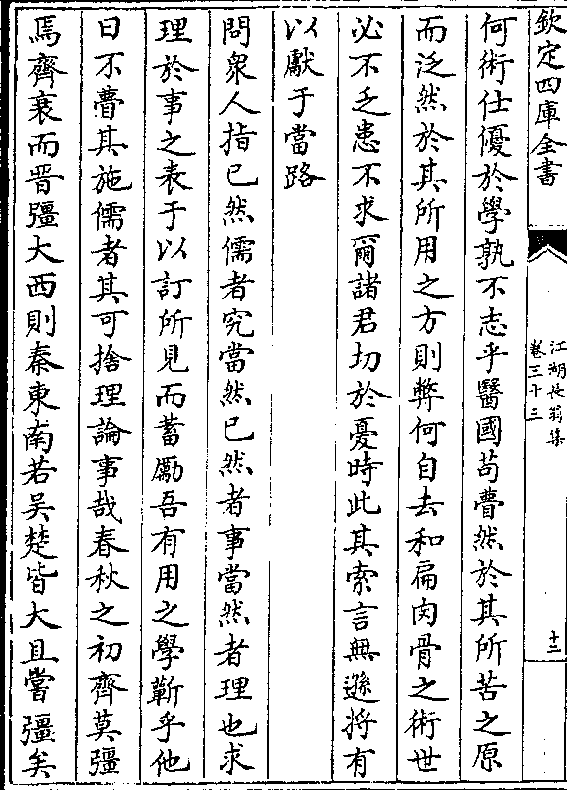 欽定四庫全書
江湖長翁集
卷三十三
十二
何術仕優於學孰不志乎醫國苟瞢然於其所苦之原
而泛然於其所用之方則弊何自去和扁肉骨之術世
必不乏患不求爾諸君切於憂時此其索言無遜將有
以獻于當路
問衆人指已然儒者究當然已然者事當然者理也求
理於事之表于以訂所見而蓄勵吾有用之學蘄乎他
日不瞢其施儒者其可捨理論事哉春秋之初齊莫彊
焉齊衰而晋彊大西則秦東南若吴楚皆大且嘗彊矣